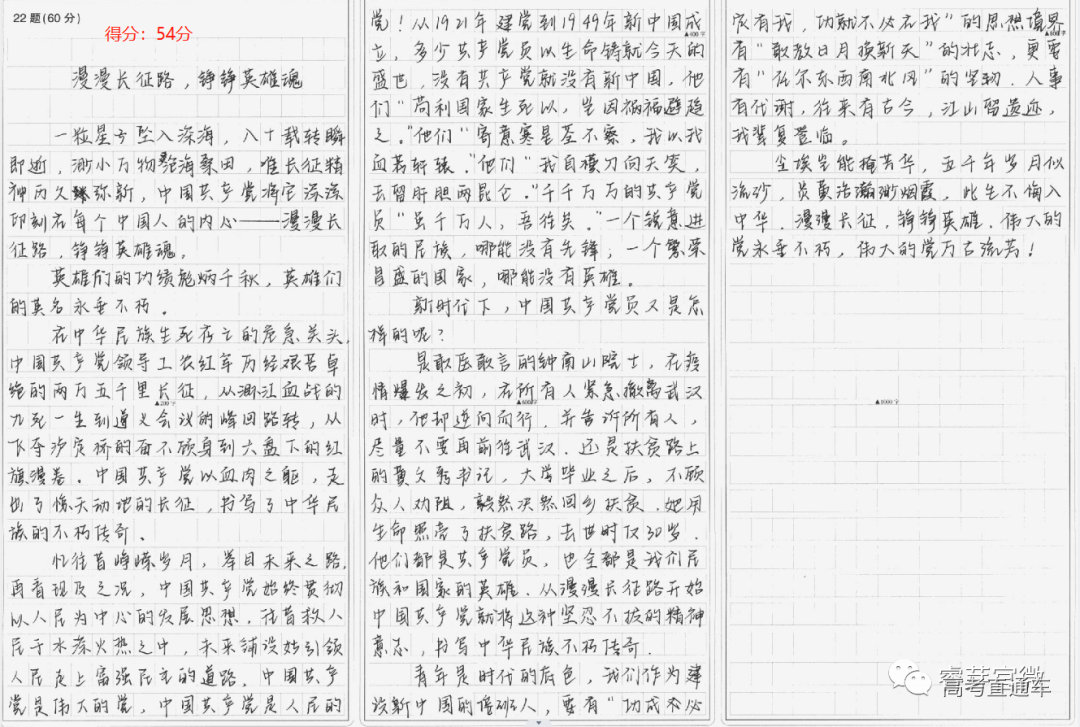 22 题(60 分)
得分：54分
漫漫长征路，铮铮英雄魂
一粒星子坠入深海，八十载转瞬
即逝，渺小万物沧海桑田，唯长征精
神历久弥新，中国共产党将它深深
印刻在每个中国人的内心——漫漫长
征路，铮铮英雄魂。
英雄们的功绩彪炳千秋，英雄们
的英名永垂不朽。
在中华民族生死存亡的危急关头，
中国共产党领导工农红军历经艰苦卓
绝的两万五千里长征，从湘江血战的
▲200 字
九死一生到遵义会议的峰回路转，从
飞夺泸定桥的奋不顾身到六盘下的红
旗漫卷。中国共产党以血肉之躯，走
出了惊天动地的长征，书写了中华民
族的不朽传奇。
忆往昔峥嵘岁月，举目未来之路，
再看现及之况，中国共产党始终贯彻
以人民为中心的发展思想，往昔救人
民于水深火热之中，未来铺设始引领
人民走上富强民主的道路。中国共产
党是伟大的党，中国共产党是人民的
党！从1921年建党到1949年新中国成
▲400 字
立，多少共产党员以生命铸就今天的
盛世，没有共产党就没有新中国，他
们“苟利国家生死以，岂因祸福避趋
之。”他们“寄意寒星荃不察，我以我
血荐轩辕。”他们“我自横刀向天笑，
去留肝胆两昆仑。”千千万万的共产党
员“虽千万人，吾往矣。”一个锐意进
取的民族，哪能没有先锋，一个繁荣
昌盛的国家，哪能没有英雄。
新时代下，中国共产党员又是怎
样的呢？
是敢医敢言的钟南山院士，在疫
情爆发之初，在所有人紧急撤离武汉
▲600字
时，他却逆向而行，并告诉所有人，
尽量不要再前往武汉。还是扶贫路上
的黄文秀书记，大学毕业之后，不顾
众人劝阻，毅然决然回乡扶贫，她用
生命照亮了扶贫路，去世时仅30岁。
他们都是共产党员，也全都是我们民
族和国家的英雄。从漫漫长征路开始
中国共产党就将这种坚忍不拔的精神
意志，书写中华民族不朽传奇。
青年是时代的底色，我们作为建
设新中国的接班人，要有“功成不必
▲800 字
在我，功就不必在我”的思想境界
有“敢教日月换新天”的壮志，更要
有“任尔东西南北风”的坚韧。人事
有代谢，往来有古今，江山留遗迹，
我辈复登临。
尘埃岂能掩芳华，五千年岁月似
流砂，炎黄浩瀚渺烟霞，此生不悔入
中华。漫漫长征，铮铮英雄。伟大的
党永垂不朽，伟大的党万古流芳！
▲1000 字
高考直通车